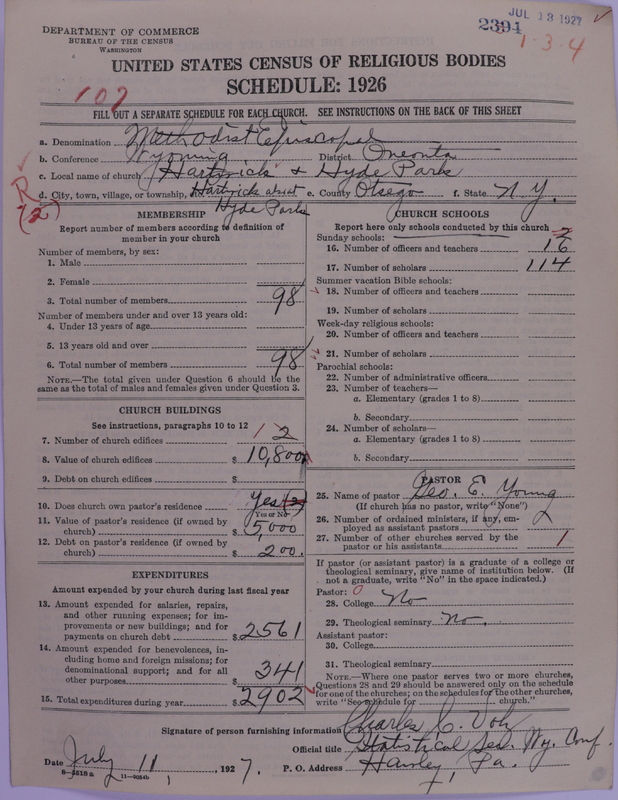 DEPARTMENT OF COMMERCE
BUREAU OF THE CENSUS
WASHINGTON
JUL 13 1927
2394
1-3-4
UNITED STATES CENSUS OF RELIGIOUS BODIES
SCHEDULE: 1926
107
FILL OUT A SEPARATE SCHEDULE FOR EACH CHURCH. SEE INSTRUCTIONS ON THE BACK OF THIS SHEET
a. Denomination Methodist Episcopal
b. Conference Wyoming District Oneonta
c. Local name of church Hartwick & Hyde Park
d. City, town, village, or township, Hartwick e. County Otsego f. State N.Y.
Hyde Park
R
(2)
MEMBERSHIP
Report number of members according to definition of member in your church
Number of members, by sex:
1. Male
2. Female
3. Total number of members 98
Number of members under and over 13 years old:
4. Under 13 years of age
5. 13 years old and over
6. Total number of members 98
NOTE.—The total given under Question 6 should be the same as the total of males and females given under Question 3.
CHURCH BUILDINGS
See instructions, paragraphs 10 to 12
7. Number of church edifices 1 2
8. Value of church edifices $ 10,800
9. Debt on church edifices $
10. Does church own pastor's residence Yes
Yes or No
11. Value of pastor's residence (if owned by church) $ 5,000
12. Debt on pastor's residence (if owned by church) $ 200.
EXPENDITURES
Amount expended by your church during last fiscal year
13. Amount expended for salaries, repairs, and other running expenses; for improvements or new buildings; and for payments on church debt $ 2561
14. Amount expended for benevolences, including home and foreign missions; for denominational support; and for all other purposes $ 341
15. Total expenditures during year $ 2902
CHURCH SCHOOLS
Report here only schools conducted by this church 2
Sunday schools:
16. Number of officers and teachers 16
17. Number of scholars 114
Summer vacation Bible schools:
18. Number of officers and teachers
19. Number of scholars
Week-day religious schools:
20. Number of officers and teachers
21. Number of scholars
Parochial schools:
22. Number of administrative officers
23. Number of teachers—
a. Elementary (grades 1 to 8)
b. Secondary
24. Number of scholars—
a. Elementary (grades 1 to 8)
b. Secondary
PASTOR
25. Name of pastor Geo. E. Young
(If church has no pastor, write "None")
26. Number of ordained ministers, if any, employed as assistant pastors
27. Number of other churches served by the pastor or his assistants 1
If pastor (or assistant pastor) is a graduate of a college or theological seminary, give name of institution below. (If not a graduate, write "No" in the space indicated.)
Pastor: 0
28. College No
29. Theological seminary No.
Assistant pastor:
30. College
31. Theological seminary
NOTE.—Where one pastor serves two or more churches, Questions 28 and 29 should be answered only on the schedule for one of the churches; on the schedules for the other churches, write "See schedule for church."
Signature of person furnishing information Charles C.
Official title Statistical Sec. Wy. Conf.
Date July 11, 1927. P. O. Address Hawley, Pa.
8-5518a 11-9054b